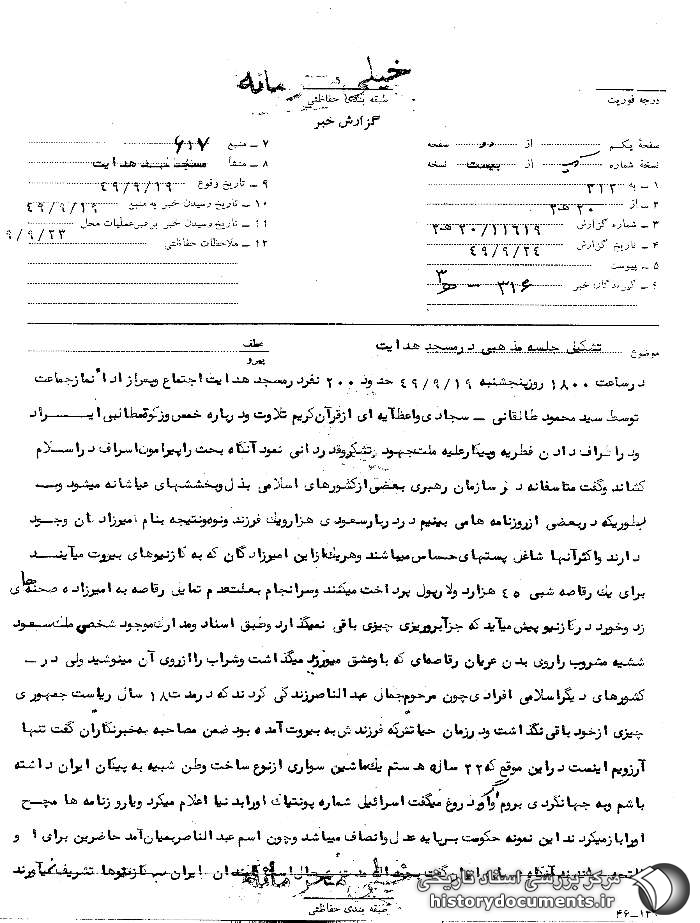 خیلی محرمانه
طبقه بندی حفاظتی
درجه فوریت
گزارش خبر
صفحهٔ یکم از دو صفحه
نسخهٔ شماره از بیست نسخه
۱ – به ۳۱۲
۲ – از ۲۰ هـ ۳
۳ – شماره گزارش ۲۰/۱۱۶۱۹ هـ ۳
۴ – تاریخ گزارش ۴۹/۹/۲۴
۵ – پیوست
۶ – گیرندگان خبر ۳۱۶
۷ – منبع ۶۱۷
۸ – منشأ مسجد هدایت
۹ – تاریخ وقوع ۴۹/۹/۱۹
۱۰ – تاریخ رسیدن خبر به منبع ۴۹/۹/۱۹
۱۱ – تاریخ رسیدن خبر برهبر عملیات محل ۹/۹/۲۳
۱۲ – ملاحظات حفاظتی
موضوع تشکیل جلسه مذهبی در مسجد هدایت
عطف
پیرو
در ساعت ۱۸۰۰ روز پنجشنبه ۴۹/۹/۱۹ حدود ۲۰۰ نفر در مسجد هدایت اجتماع و پس از اداء نماز جماعت
توسط سید محمود طالقانی – سجادی واعظ آیه ای از قرآن کریم تلاوت و درباره خمس و زکوة مطالبی ایراد
و در اطراف دادن فطریه و پیکار علیه ملت جهود تشکر و قدردانی نمود آنگاه بحث را پیرامون اسراف در اسلام
کشاند و گفت متاسفانه در سازمان رهبری بعضی از کشورهای اسلامی بذل و بخششهای عیاشانه میشود و
بطوریکه در بعضی از روزنامه ها می بینیم در دربار سعودی هزار و یک فرزند و نوه و نتیجه بنام امیرزادگان وجود
دارند و اکثر آنها شاغل پستهای حساس میباشند و هر یک از این امیرزادگان که به کازینوهای بیروت میآیند
برای یک رقاصه شبی ۴۵ هزار دلار پول پرداخت میکنند و سرانجام بعلت عدم تمایل رقاصه به امیرزاده صحنه های
زد و خورد در کازینو پیش میآید که جز آبروریزی چیزی باقی نمیگذارد و طبق اسناد و مدارک موجود شخص ملک سعود
شیشه مشروب را روی بدن عریان رقاصه ای که باو عشق میورزد میگذاشت و شراب را از روی آن مینوشید ولی در –
کشورهای دیگر اسلامی افرادی چون مرحوم جمال عبدالناصر زندگی کردند که در مدت ۱۸ سال ریاست جمهوری
چیزی از خود باقی نگذاشت و در زمان حیاتش که فرزندش به بیروت آمده بود ضمن مصاحبه به خبرنگاران گفت تنها
آرزویم اینست در این موقع که ۲۲ ساله هستم یک ماشین سواری از نوع ساخت وطن شبیه به پیکان ایران داشته
باشم و به جهانگردی بروم و او دروغ میگفت اسرائیلی شماره پونتیاک او را بدنیا اعلام میکرد و یا روزنامه ها مچ
او را باز میکردند این نمونه حکومت بر پایه عدل و انصاف میباشد و چون اسم عبدالناصر بمیان آمد حاضرین برای او
ایران به کازینوها تشریف میآورند
طبقه بندی حفاظتی
مرکز بررسی اسناد تاریخی
historydocuments.ir